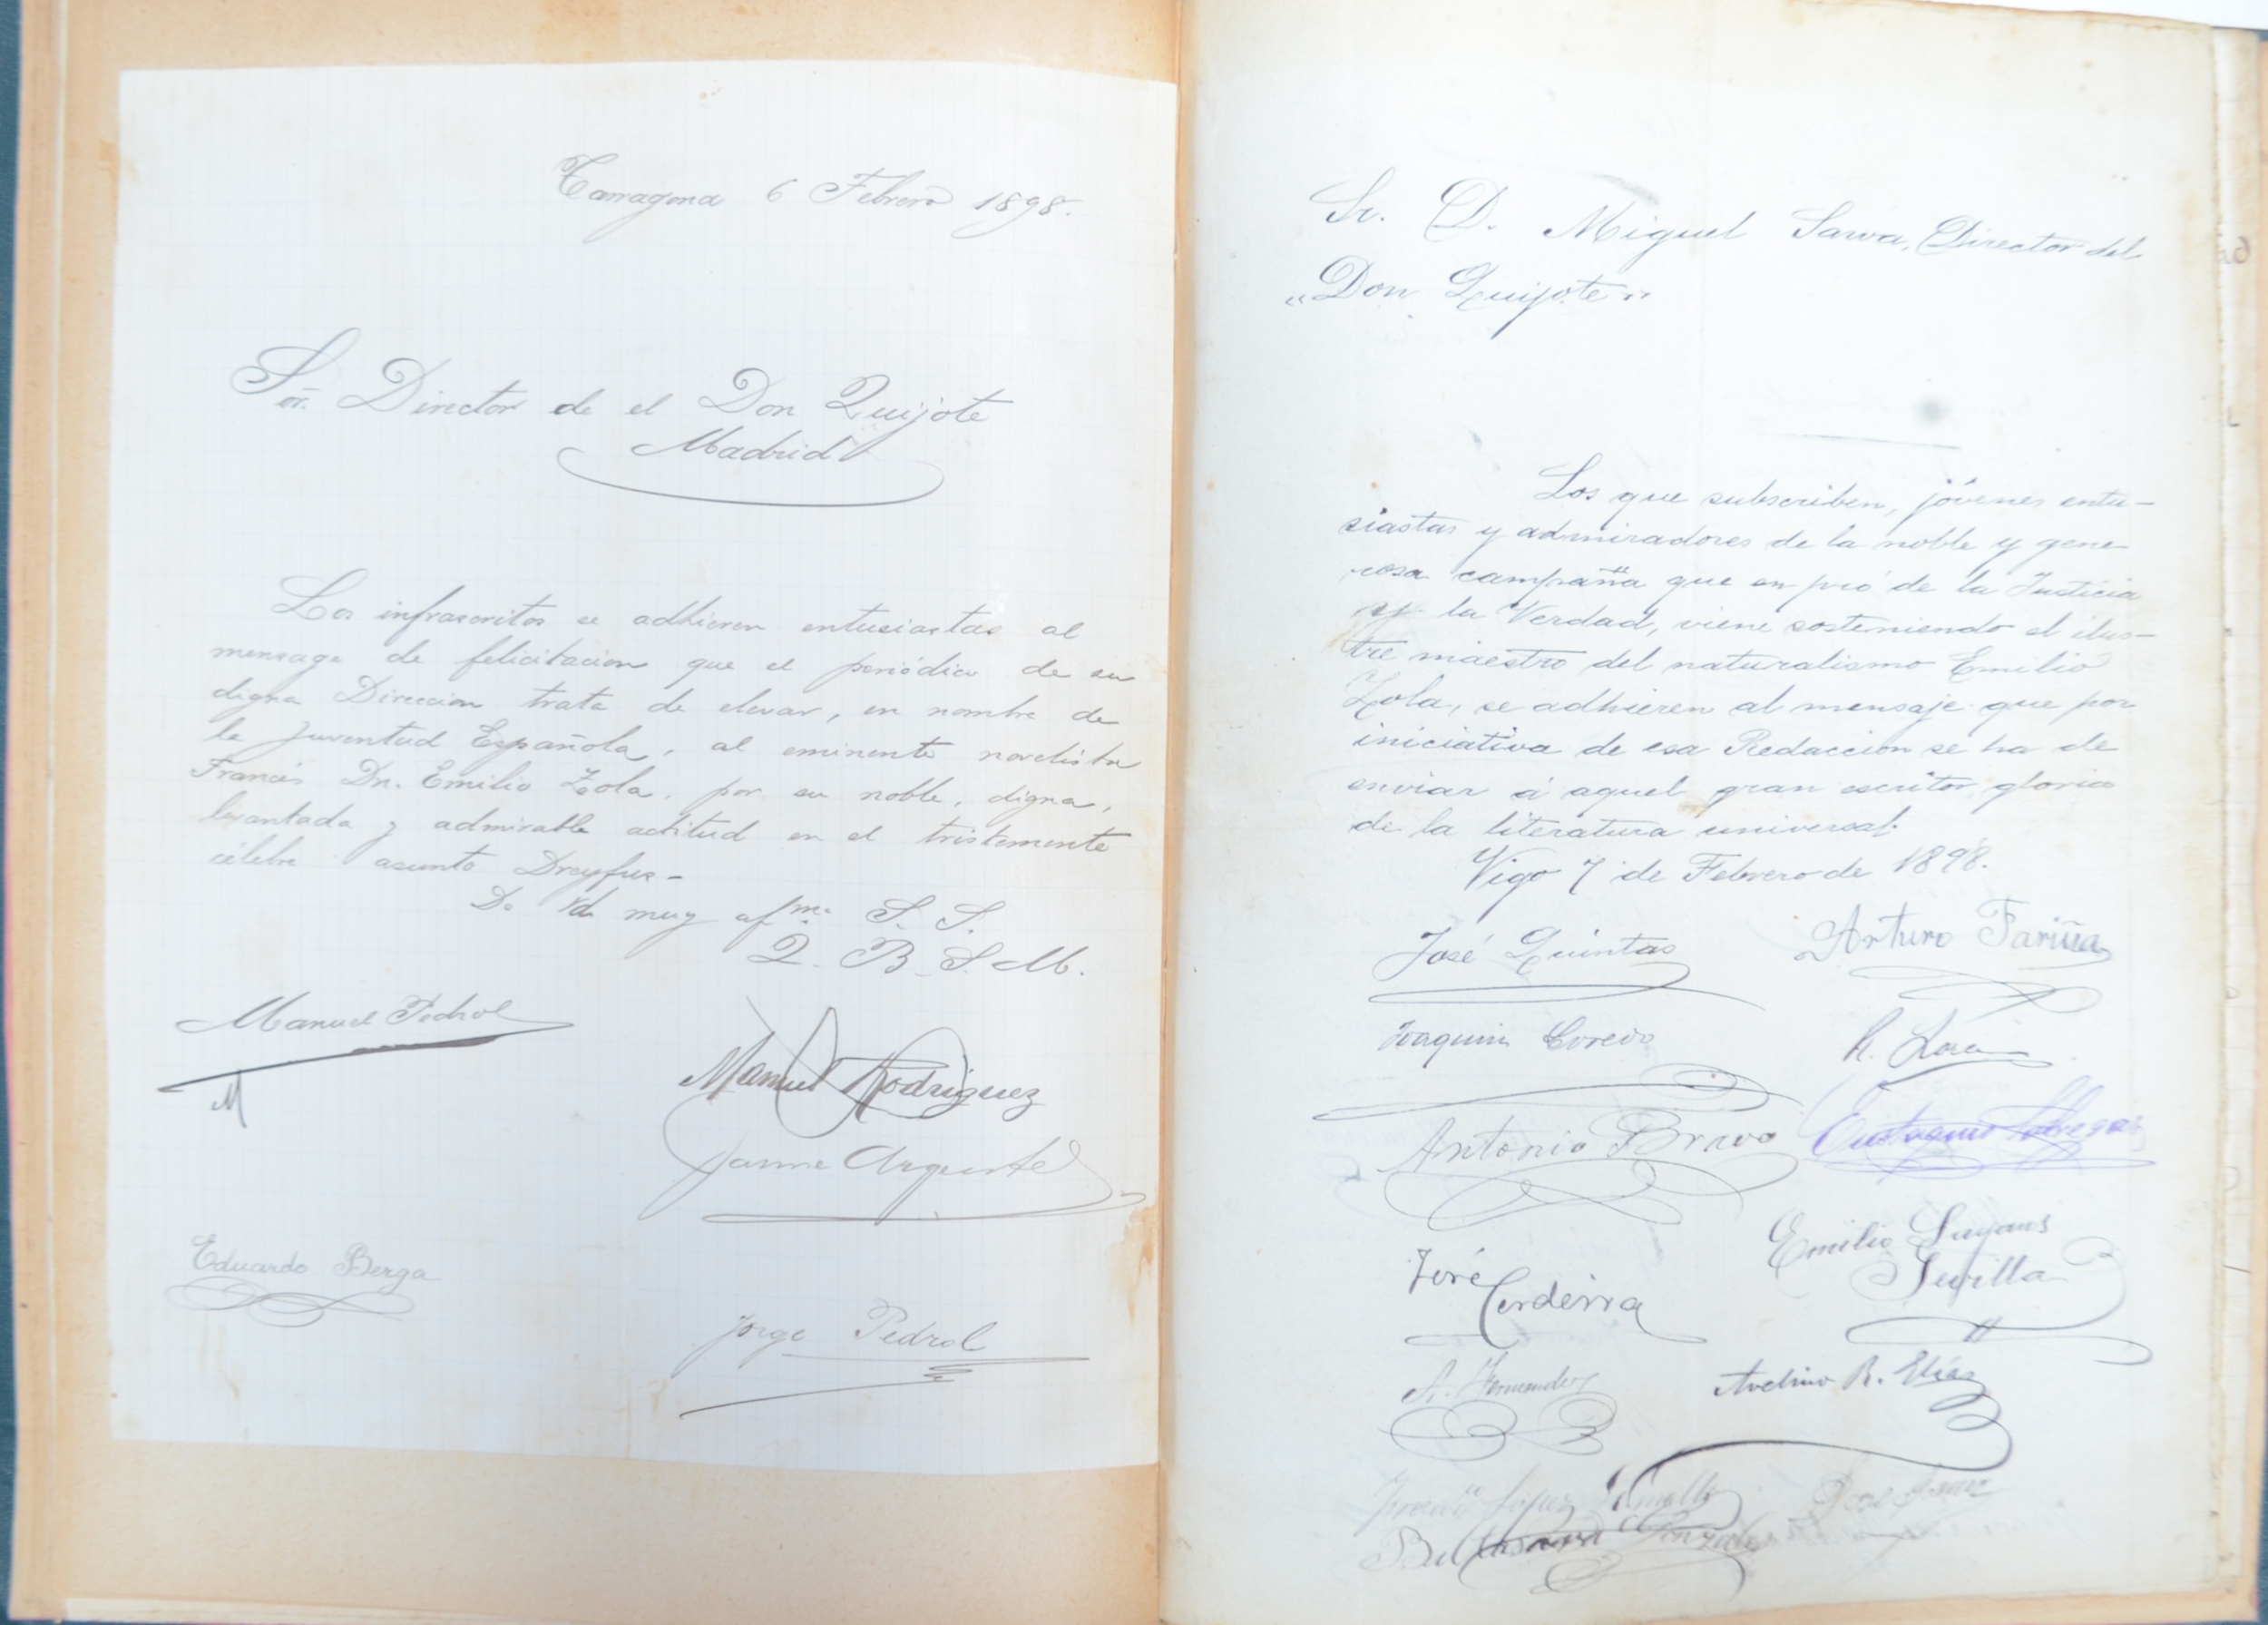 Tarragona 6 Febrero 1898.
Sor. Director de el Don Quijote
Madrid
Los infrascritos se adhieren entusiastas al
mensage de felicitacion que el periódico de su
digna Direccion trata de elevar, en nombre de
la Juventud Española, al eminente novelista
Francés Dn. Emilio Zola, por su noble, digna,
levantada y admirable actitud en el tristemente
célebre asunto Dreyfus-
De Vd muy afmo. S. S.
Q. B. S. M.
Manuel Pedrol
M
Manuel Rodriguez
Jaime
Eduardo Berga
Jorge Pedrol
Sr. D. Miguel Sawa, Director del
"Don Quijote"
Los que subscriben, jóvenes entu-
siastas y admiradores de la noble y gene-
rosa campaña que en pró de la Justicia
y la Verdad, viene sosteniendo el ilus-
tre maestro del naturalismo Emilio
Zola, se adhieren al mensaje que por
iniciativa de esa Redaccion se ha de
enviar á aquel gran escritor, gloria
de la literatura universal.
Vigo 7 de Febrero de 1898.
José Quintas
Arturo Fariña
Joaquin
Antonio Bravo
José Cerdeira
Emilio
Sevilla
Fernandez
Avelino R. Elías
López
Gonzalez